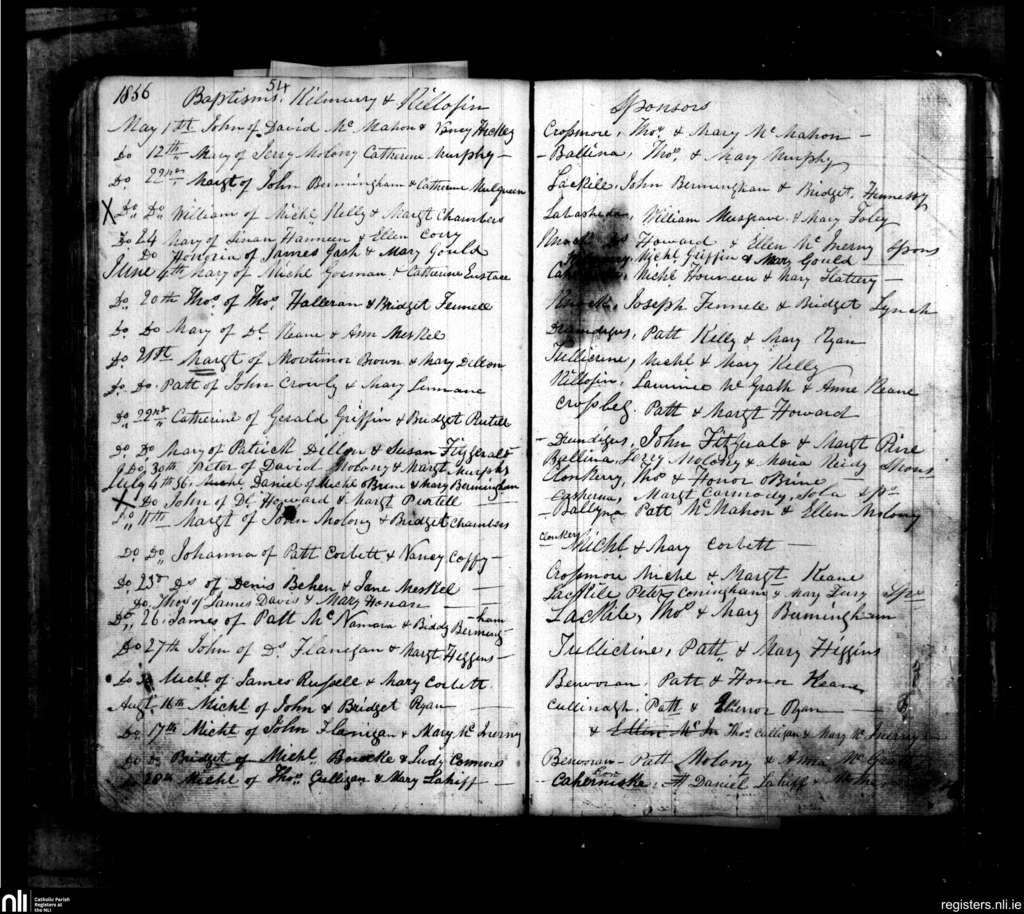 1856 Baptisms, 54 Kilmurry & Killofin
May 1st John of David Mc Mahon & Nancy Hickey
Do 12th Mary of Jerry Molony Catherine Murphy —
Do 22nd Margt of John Bermingham & Catherine Mulqueen
X Do Do William of Michl Kelly & Margt Chambers
Do 24 Mary of Sinan Hanneen & Ellen Corry
Do Honoria of James Cash & Mary Gould
June 6th Mary of Michl Gorman & Catherine Eustace
Do 20th Thos of Thos Halleran & Bridget Fennell
Do Do Mary of Dl Keane & Ann Meskel
Do 21st Margt of Mortimor Brown & Mary Dillon
Do Do Patt of John Crowly & Mary Linnane
Do 22nd Catherine of Gerald Griffin & Bridget Purtell
Do Do Mary of Patrick Dillon & Susan Fitzgerald
Do 30th Peter of David Molony & Margt Murphy
July 4th 56, Daniel of Michl OBrien & Mary Bermingham
X Do John of Dl Howard & Margt Purtell —
Do 11th Margt of John Molony & Bridget Chambers
Do Do Johanna of Patt Corbett & Nancy Coffy —
Do 23rd Ds of Denis Behen & Jane Meskel —
Do Thos of James Davis & Mary Honan —
Do 26 James of Patt Mc Namara & Biddy Berming-ham
Do 27th John of Ds Flanigan & Margt Higgins —
Do Do Michl of James Russell & Mary Corbett
Augt 16th Michl of John & Bridget Ryan —
Do 17th Michl of John Flanigan & Mary Mc Inerny
Do Do Bridget of Michl & Judy Connors
Do 28th Michl of Thos Culligan & Mary Lahiff —
Sponsors
Crossmore, Thos & Mary Mc Mahon —
— Ballina, Thos & Mary Murphy
Lackile, John Bermingham & Bridget Hennessy
Labasheda, William Musgrave & Mary Foley
Howard, & Ellen Mc Inerny Spons
Michl Griffin & Mary Gould —
Michl Houneen & Mary Slattery —
Knock, Joseph Fennell & Bridget Lynch
Drumdigus, Patt Kelly & Mary Ryan
Tullicrine, Michl & Mary Kelly
Killofin, Laurence Mc Grath & Anne Keane
Crossbeg Patt & Margt Howard
— Drumdigus, John Fitzgerald & Margt
Ballina, Jerry Molony & Maria Reidy Spons
Clonkery, Thos & Honor OBrine —
Margt Carmody, Sola Spr
— Ballyna Patt Mc Mahon & Ellen Molony
Clonkery Michl & Mary Corbett —
Crossmore Michl & Margt Keane
Lackile Peter Coningham & Mary Spr
Lackile, Thos & Mary Burmingham
Tullicrine, Patt & Mary Higgins
Benvoran, Patt & Honor Keane
Cullenagh, Patt & Elienor Ryan —
& Ellen Mc In Thos Culligan & Mary Mc Inerny —
Benvoran — Patt Molony & Anna
— Caherniska, Daniel Lahiff &
nli Catholic Parish
Registers at
the NLI
registers.nli.ie